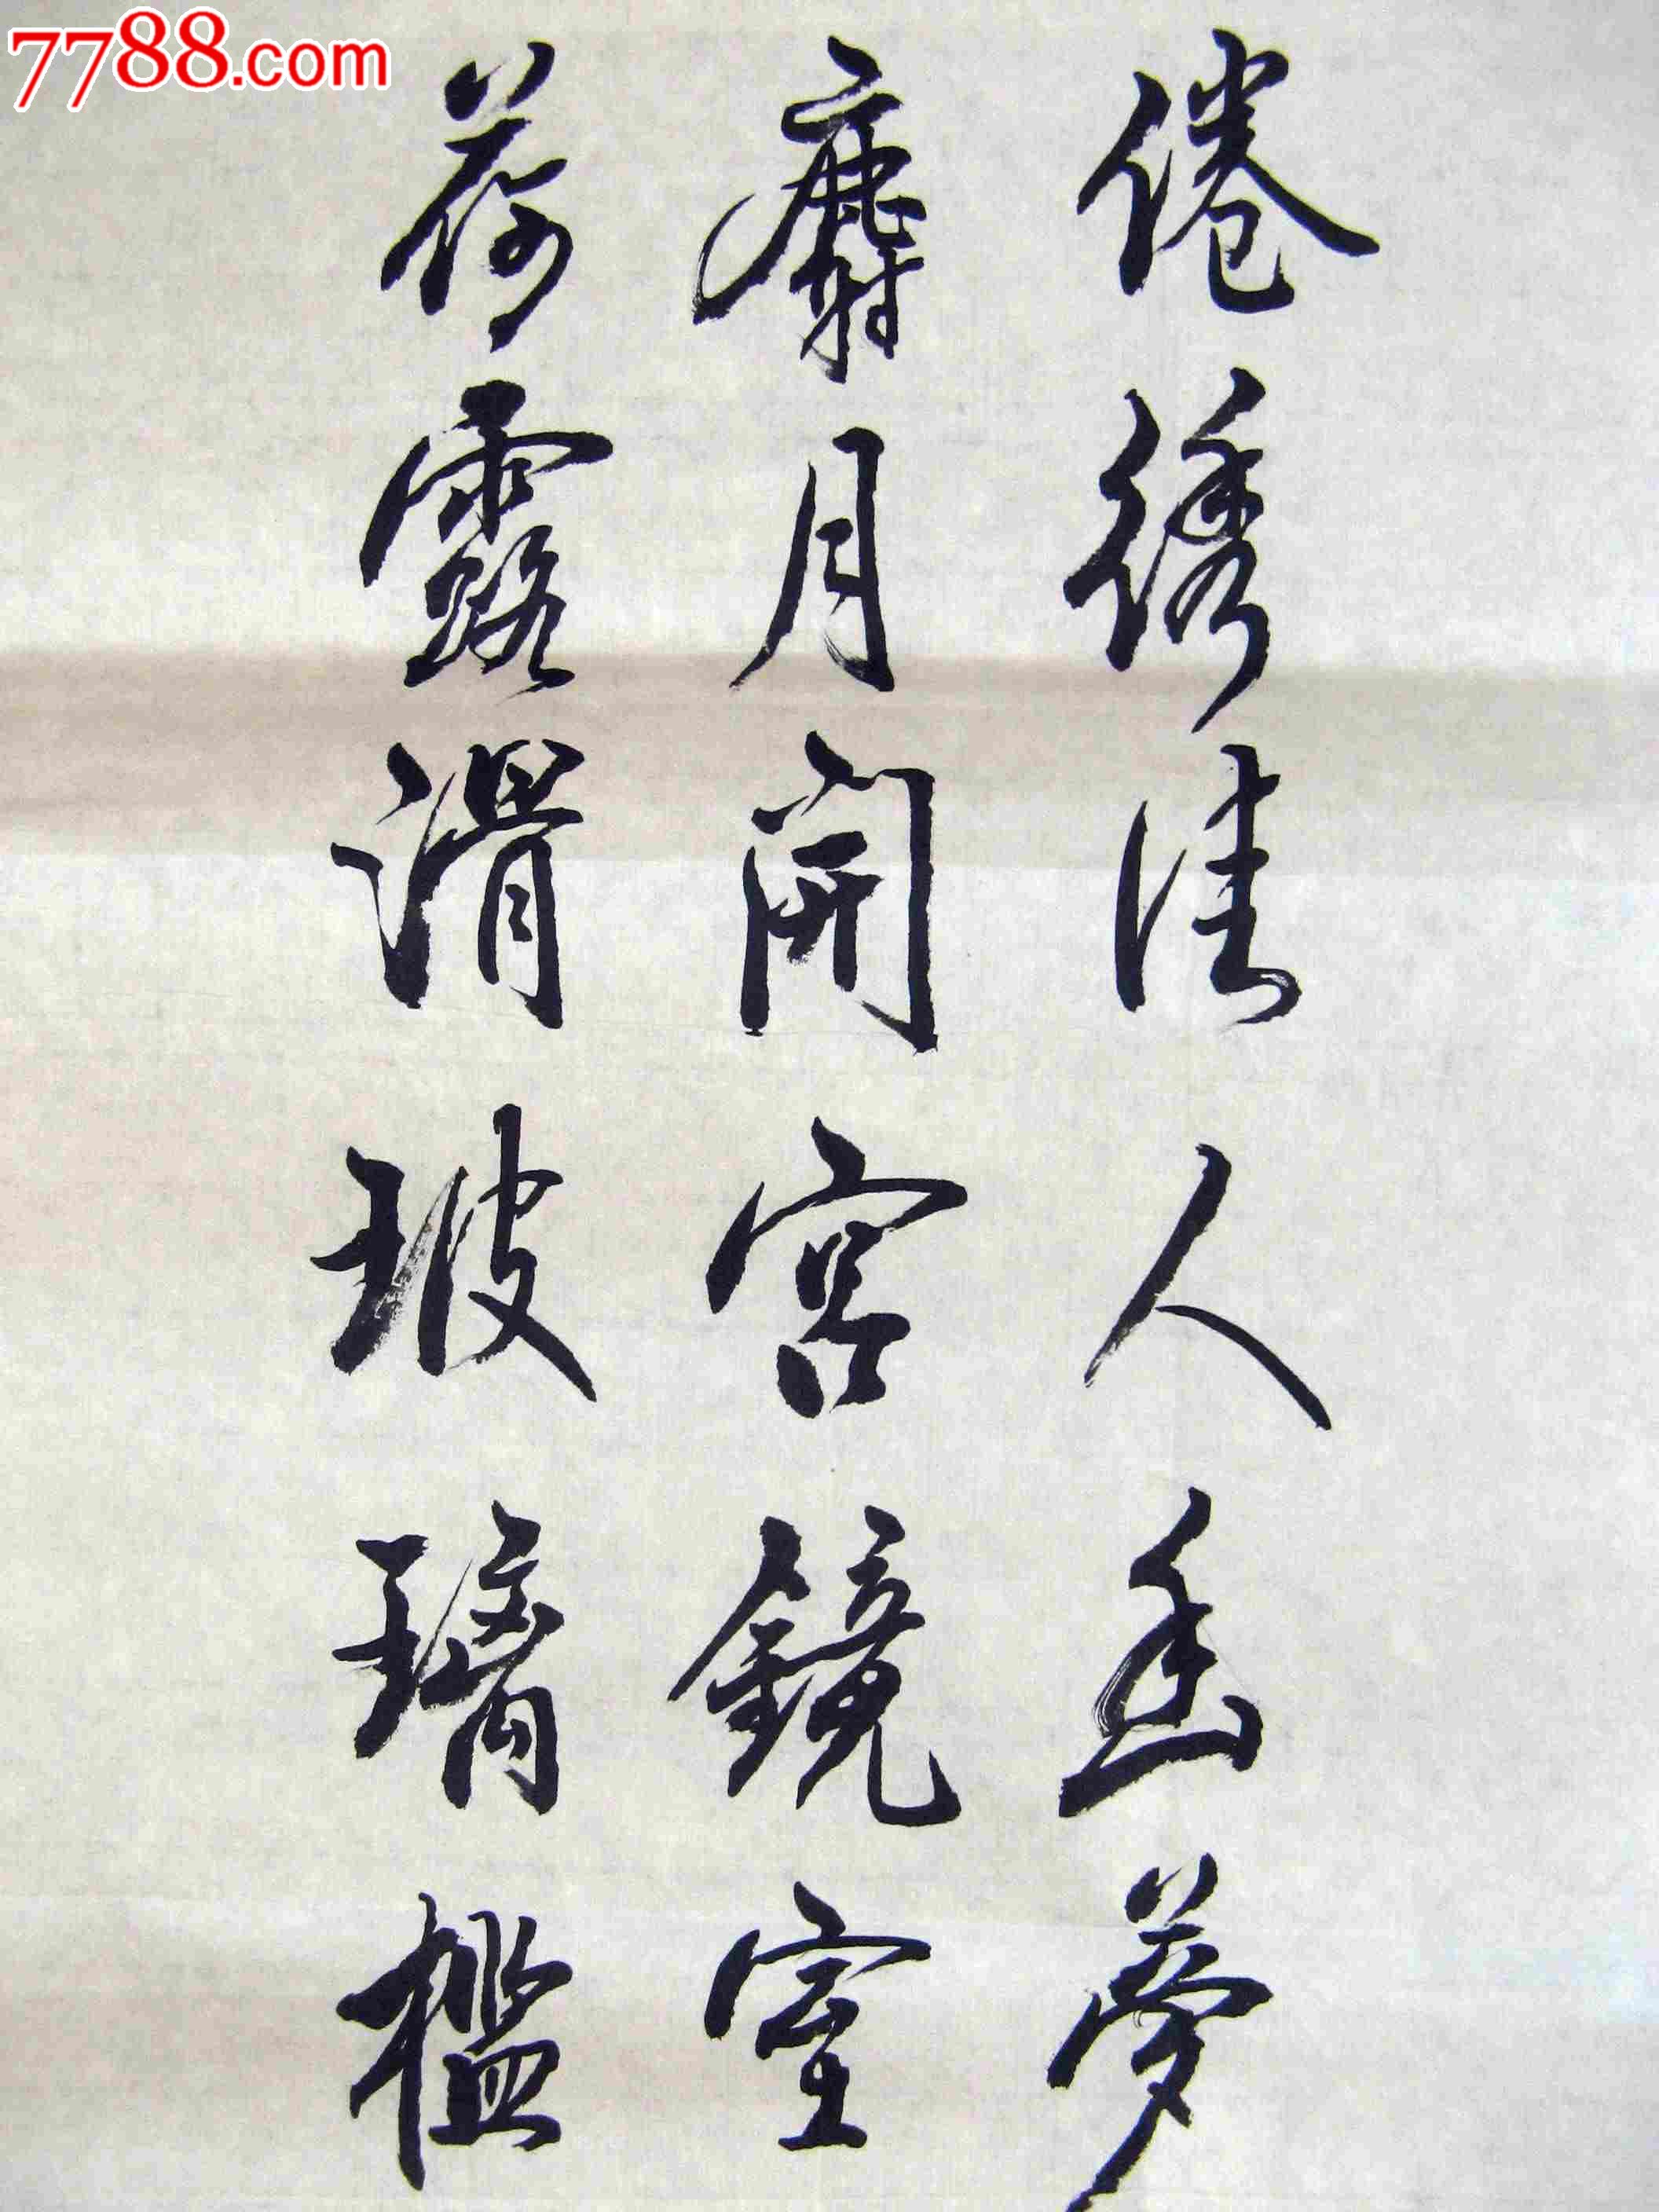 7788.com
倦绣佳人幽梦
麝月开宫镜室
荷露滑玻璃槛